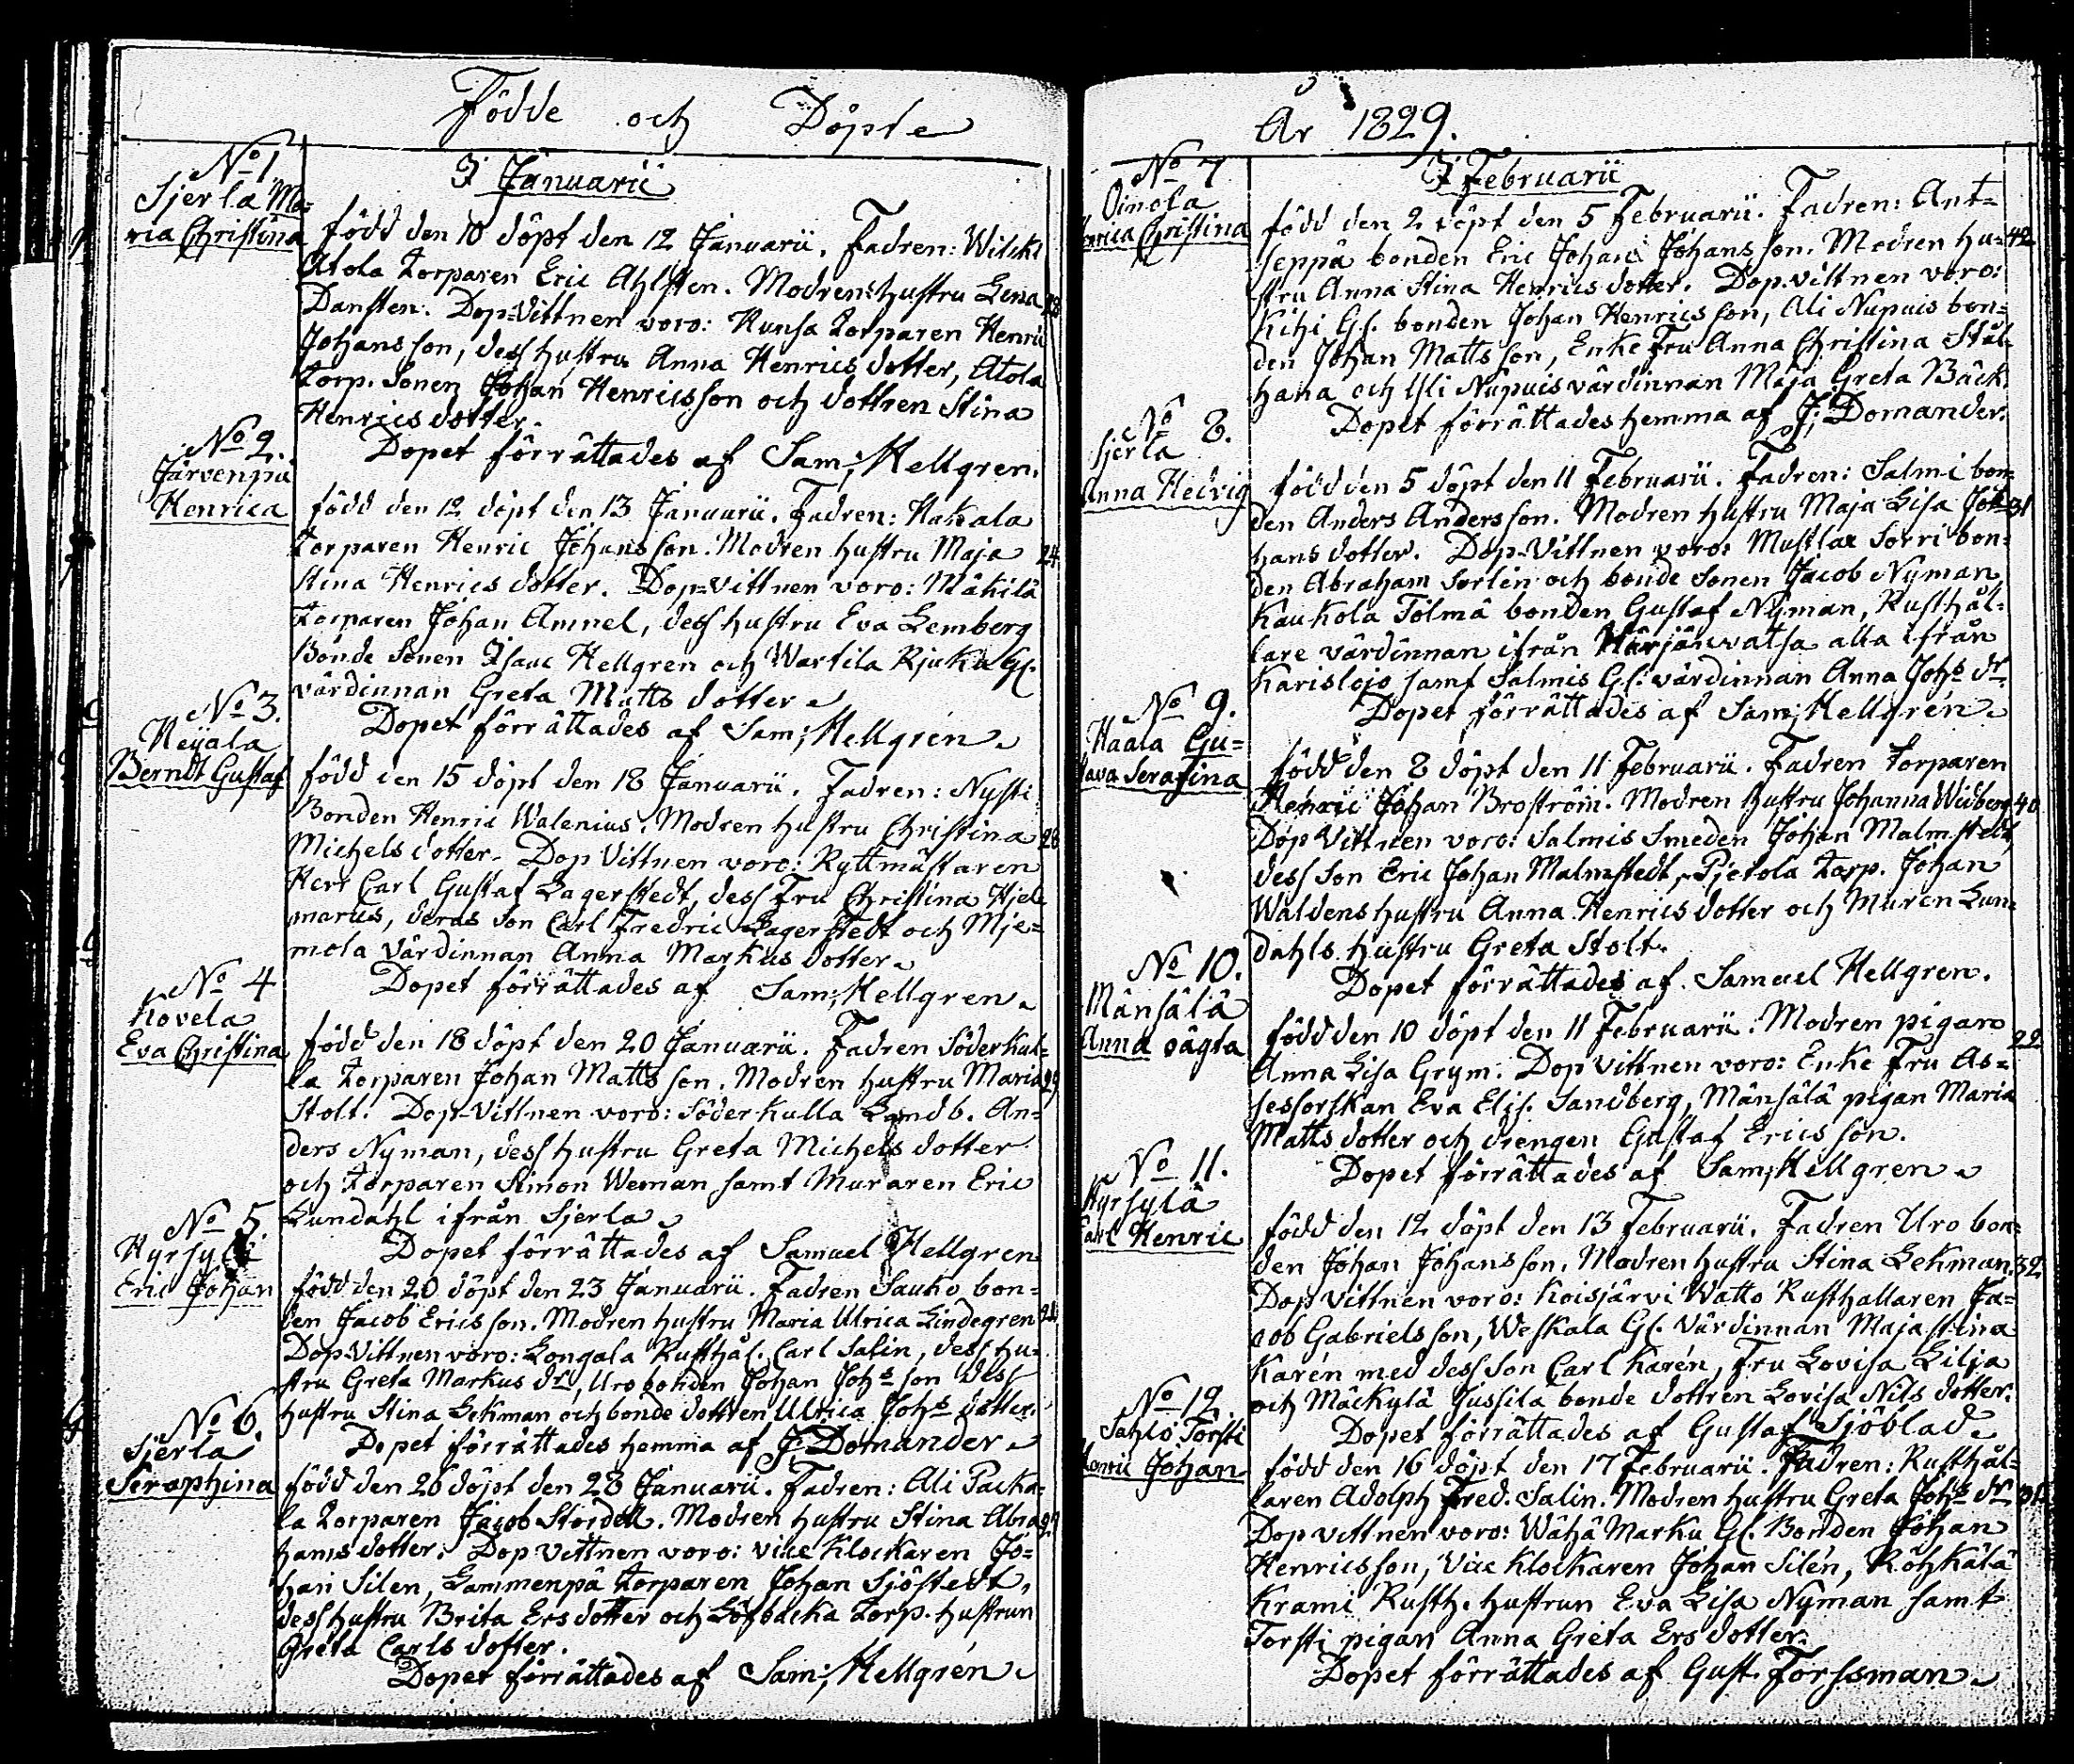 Födde och Döpte
I Januarii
No 1
Sjerla Ma=
ria Christina
född den 10 döpt den 12 Januarii. Fadren: Wilcki
Atola Torparen Eric Ahlsten. Modren: hustru Lena 28
Dansten. Dop-Vittnen voro: Hunsa Torparen Henric
Johansson, dess hustru Anna Henrics dotter, Atola
Torp. Sonen Johan Henricsson och dottren Stina
Henrics dotter.
Dopet förrättades af Sam; Hellgren.
No 2.
Järvenpää
Henrica
född den 12 döpt den 13 Januarii. Fadren: Hakala
Torparen Henric Johansson. Modren hustru Maja 24
Stina Henrics dotter. Dop-Vittnen voro: Mäkilä
Torparen Johan Amnel, dess hustru Eva Lemberg
Bonde Sonen Isaac Hellgren och Wartila Rjuka Gl.
värdinnan Greta Matts dotter
Dopet förrättades af Sam; Hellgren
No 3.
Heijala
Berndt Gustaf
född den 15 döpt den 18 Januarii. Fadren: Nysti
Bonden Henric Walenius. Modren hustru Christina 28
Michels dotter. Dop Vittnen voro: Ryttmästaren
Herr Carl Gustaf Lagerstedt, dess Fru Christina Hjel
marus, deras Son Carl Fredric Lagerstedt och Mje=
mola Värdinnan Anna Markus dotter
Dopet förrättades af Sam; Hellgren
No 4
Hovela
Eva Christina
född den 18 döpt den 20 Januarii. Fadren Söderkul=
la Torparen Johan Mattsson. Modren hustru Maria 29
Stolt. Dop-Vittnen voro: Söderkulla Landb. An=
ders Nyman, dess hustru Greta Michels dotter
och Torparen Simon Weman samt Muraren Eric
Lundahl ifrån Sjerla
Dopet förrättades af Samuel Hellgren
No 5
Hyrsylä
Eric Johan
född den 20 döpt den 23 Januarii. Fadren Sauko bon=
den Jacob Ericsson. Modren hustru Maria Ulrica Lindegren 21
Dop-Vittnen voro: Longala Rusthål. Carl Salin, dess hu=
stru Greta Markus dr, Uro bonden Johan Johs son dess
hustru Stina Lekman och bonde dottren Ulrica Johs dotter.
Dopet förrättades hemma af J; Domander
No 6.
Sjerla
Seraphina
född den 26 döpt den 28 Januarii. Fadren: Ali Packa=
la Torparen Jacob Stordell. Modren hustru Stina Abra 27
hams dotter. Dop vittnen voro: vice Klockaren Jo=
han Silen, Lammenpä Torparen Johan Sjöstedt,
dess hustru Brita Ers dotter och Löfbacka Torp. hustrun
Greta Carls dotter.
Dopet förrättades af Sam; Hellgren
År 1829.
I Februarii
No 7
Oinola
Henrica Christina
född den 2 döpt den 5 Februarii. Fadren: Ant=
seppä bonden Eric Johan Johansson. Modren hu= 42
stru Anna Stina Henrics dotter. Dop-vittnen voro:
Kihi Gl. bonden Johan Henricsson, Ali Nupuis bon=
den Johan Mattsson, Enke Fru Anna Christina Stål=
hana och Yli Nupuis värdinnan Maja Greta Bäck.
Dopet förrättades hemma af J; Domander.
No 8.
Sjerla
Anna Hedvig
född den 5 döpt den 11 Februarii. Fadren: Salmi bon=
den Anders Andersson. Modren hustru Maja Lisa Jo= 31
hans dotter. Dop-Vittnen voro: Mustlax Sorri bon=
den Abraham Sorlin och bonde Sonen Jacob Nyman,
Kaukola Tölmä bonden Gustaf Nyman, Rusthål=
lare värdinnan ifrån Härjänvatsa alla ifrån
Karislojo samt Salmis Gl. värdinnan Anna Johs dr
Dopet förrättades af Sam; Hellgren
No 9.
Haala Gu=
stava Serafina
född den 8 döpt den 11 Februarii. Fadren Torparen
Henric Johan Broström. Modren hustru Johanna Widberg 40
Dop Vittnen voro: Salmis Smeden Johan Malmstedt,
dess Son Eric Johan Malmstedt, Pjetola Torp. Johan
Waldens hustru Anna Henrics dotter och Muren Lun=
dahls hustru Greta Stolt.
Dopet förrättades af Samuel Hellgren.
No 10.
Mänsälä
Anna oägta
född den 10 döpt den 11 Februarii. Modren pigan 22
Anna Lisa Grym. Dop vittnen voro: Enke Fru As=
sessorskan Eva Elis. Sandberg, Mänsälä pigan Maria
Matts dotter och drengen Gustaf Ericsson.
Dopet förrättades af Sam; Hellgren
No 11.
Hyrsylä
Carl Henric
född den 12 döpt den 13 Februarii. Fadren Uro bon=
den Johan Johansson. Modren hustru Stina Lekman. 32
Dop vittnen voro: Koisjärvi Watto Rusthallaren Ja=
cob Gabrielsson, Weskala Gl. Värdinnan Maja stina
Karén med dess Son Carl Karén, Fru Lovisa Lilja
och Mäckylä Jussila bonde dottren Lovisa Nils dotter.
Dopet förrättades af Gustaf Sjöblad
No 12
Sahlo Torsti
Henric Johan
född den 16 döpt den 17 Februarii. Fadren: Rusthål=
laren Adolph Fred. Salin. Modren hustru Greta Johs dr 31
Dop vittnen voro: Wähä Marku Gl. Bonden Johan
Henricsson, Vice Klockaren Johan Silén, Röhkälä
Krami Rusth. hustrun Eva Lisa Nyman samt
Torsti pigan Anna Greta Ers dotter.
Dopet förrättades af Gust. Forssman